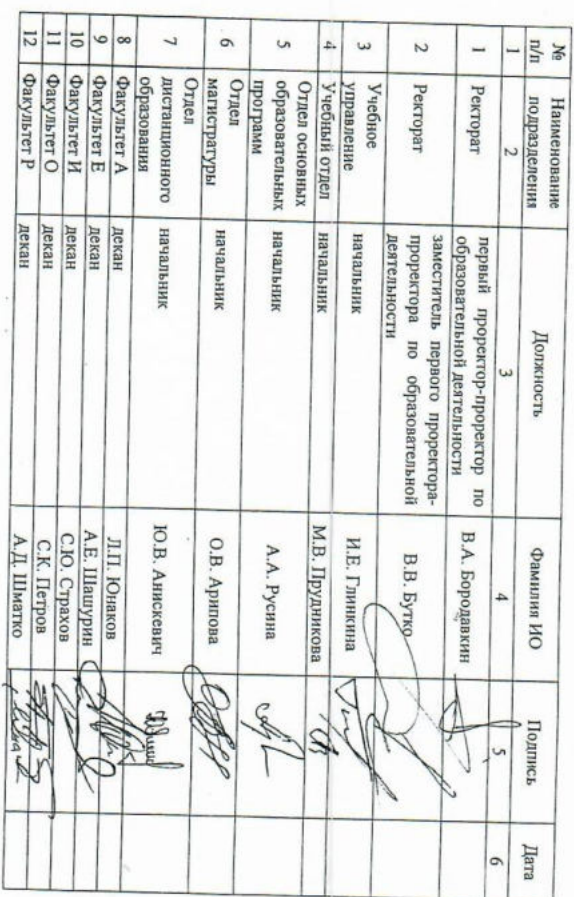 № п/п | Наименование подразделения | Должность | Фамилия ИО | Подпись | Дата
1 | 2 | 3 | 4 | 5 | 6
1 | Ректорат | первый проректор-проректор по образовательной деятельности | В.А. Бородавкин
2 | Ректорат | заместитель первого проректора-проректора по образовательной деятельности | В.В. Бутко
3 | Учебное управление | начальник | И.Е. Глинкина
4 | Учебный отдел | начальник | М.В. Прудникова
5 | Отдел основных образовательных программ | начальник | А.А. Русина
6 | Отдел магистратуры | начальник | О.В. Арипова
7 | Отдел дистанционного образования | начальник | Ю.В. Анискевич
8 | Факультет А | декан | Л.П. Юнаков
9 | Факультет Е | декан | А.Е. Шашурин
10 | Факультет И | декан | С.Ю. Страхов
11 | Факультет О | декан | С.К. Петров
12 | Факультет Р | декан | А.Д. Шматко